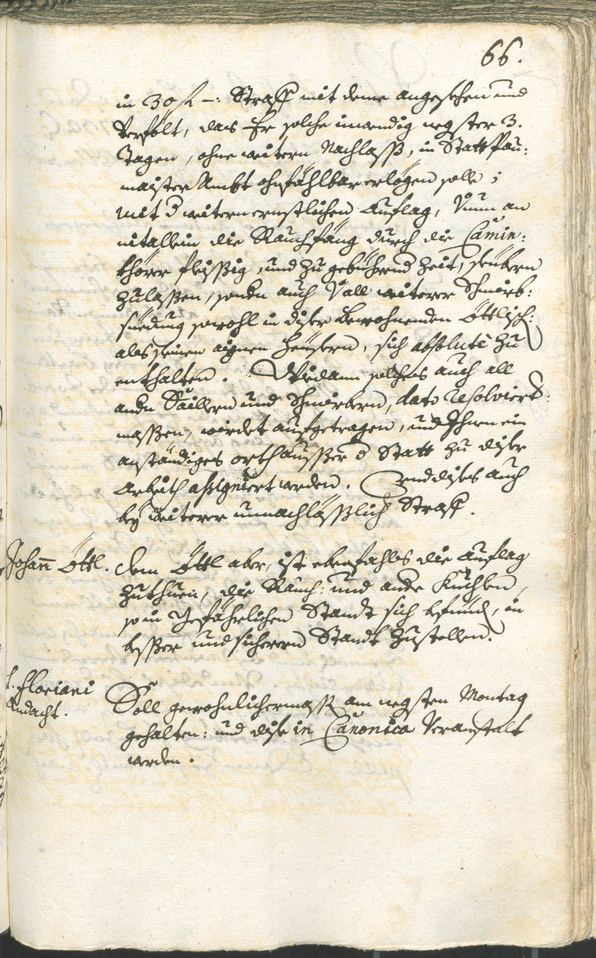 66.
in 30 f –: Straff mit deme angesehen und
verfölt, das Er solche inwendig negster 3.
Tagen, ohne weitern Nachlass, in Statt Pau:
maister Ambt ohnfählbar erlegen solle;
mit d weitern ernstlichen Auflag, Nunn an
nit allein die Rauchfäng durch die Camin:
khörer fleissig, und zu gebührend Zeit, seubern
zulassen, sondn auch Vall weiterer Schmirb:
siedung sowohl in diser bewohnenden Öttlisch:
als seinen aignen Heusern, sich absolute zu
enthalten. Wie dann solches auch all
andn Saillern und Schmirbern, dato resolvierter
massen, würdet aufgetragen, und Ihnen ein
anständiges orth ausser d Statt zu diser
Arbeith assigniert werden. Und dises auch
bey weiterer unnachlässlich Straff.
Johann Öttl. Dem Öttl aber, ist ebenfahls die Auflag
zuthuen, die Rauch: und andre Kuchen,
so in gefährlichen Standt sich befind, in
besser und sicherern Standt zustellen.
S. Floriani
Andacht.
Soll gewohnlichermass am negsten Montag
gehalten: und dise in Canonica veranstalt
werden.